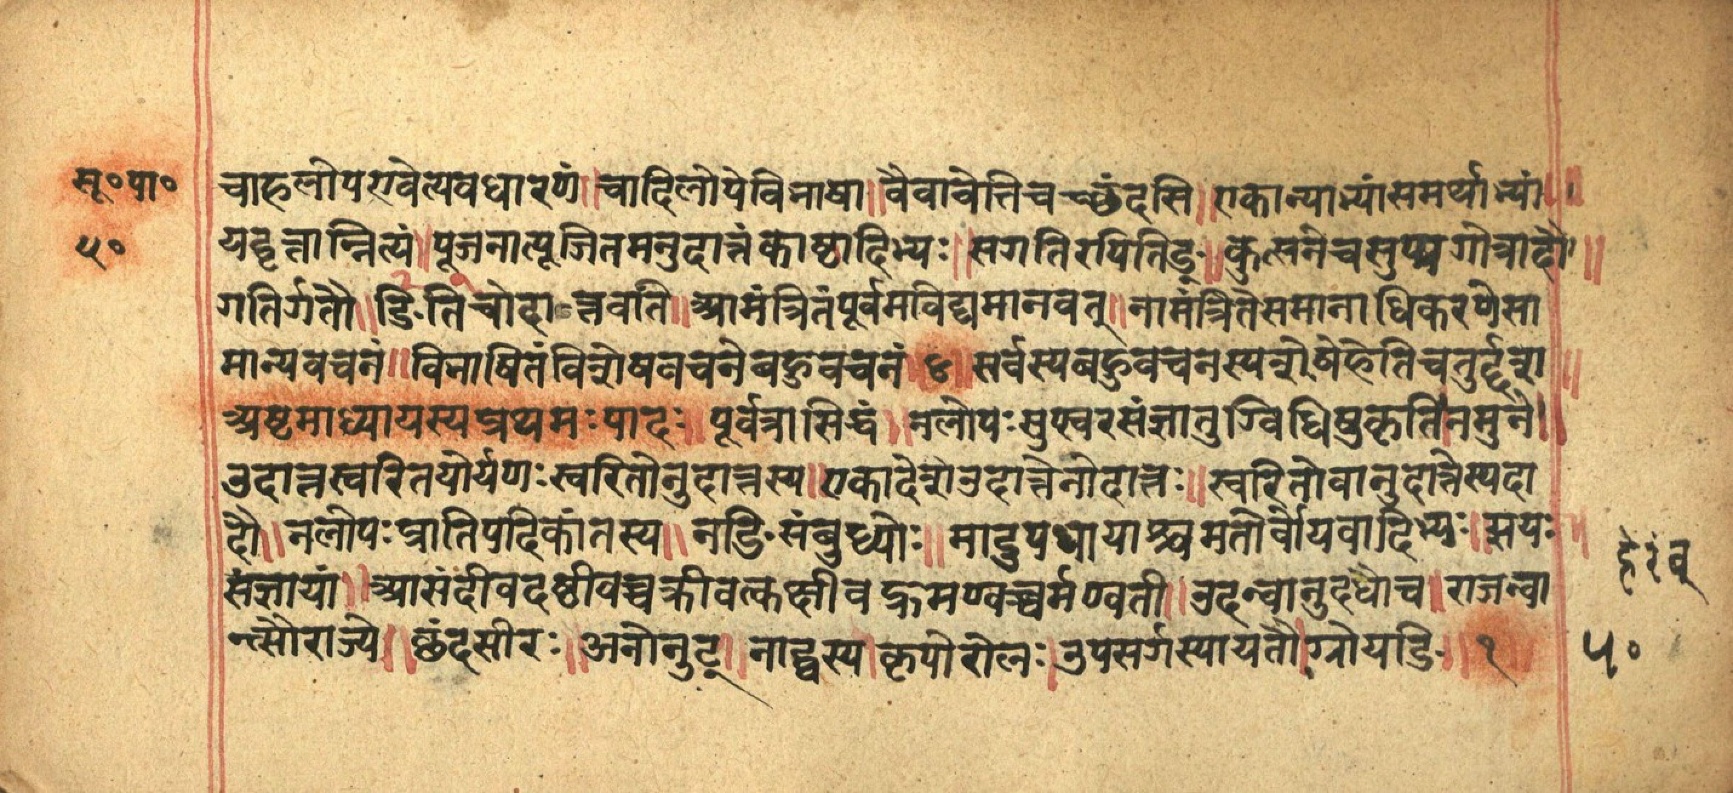 सू॰पा॰
५०
चाहलोपएवेत्यवधारणं॥चादिलोपेविभाषा॥वैवावेतिचच्छंदसि॥एकान्याभ्यांसमर्थाभ्यां॥
यद्वृत्तान्नित्यं॥पूजनात्पूजितमनुदात्तंकाष्ठादिभ्यः॥सगतिरपितिङ्॥कुत्सनेचसुप्यगोत्रादौ॥
गतिर्गतौ॥तिङिचोदात्तवति॥आमंत्रितंपूर्वमविद्यमानवत्॥नामंत्रितेसमानाधिकरणेसा
मान्यवचनं॥विभाषितंविशेषवचनेबहुवचनं॥सर्वस्यबहुवचनस्यशेषेहेतिचतुर्दश॥
अष्टमाध्यायस्यप्रथमःपादः॥पूर्वत्रासिद्धं॥नलोपःसुप्स्वरसंज्ञातुग्विधिषुकृति॥नमुने॥
उदात्तस्वरितयोर्यणःस्वरितोनुदात्तस्य॥एकादेशउदात्तेनोदात्तः॥स्वरितोवानुदात्तेस्यदा
दौ॥नलोपःप्रातिपदिकांतस्य॥नङिसंबुध्योः॥मादुपधायाश्चमतोर्वोयवादिभ्यः॥झयः॥
संज्ञायां॥आसंदीवदष्ठीवच्चक्रीवत्कक्षीवद्रुमण्वच्चर्मण्वती॥उदन्वानुदधौच॥राजन्वा
न्त्सौराज्ये॥छंदसीरः॥अनोनुट्॥नाद्घस्य॥कृपोरोलः॥उपसर्गस्यायतौ॥ग्रोयङि॥१
५०